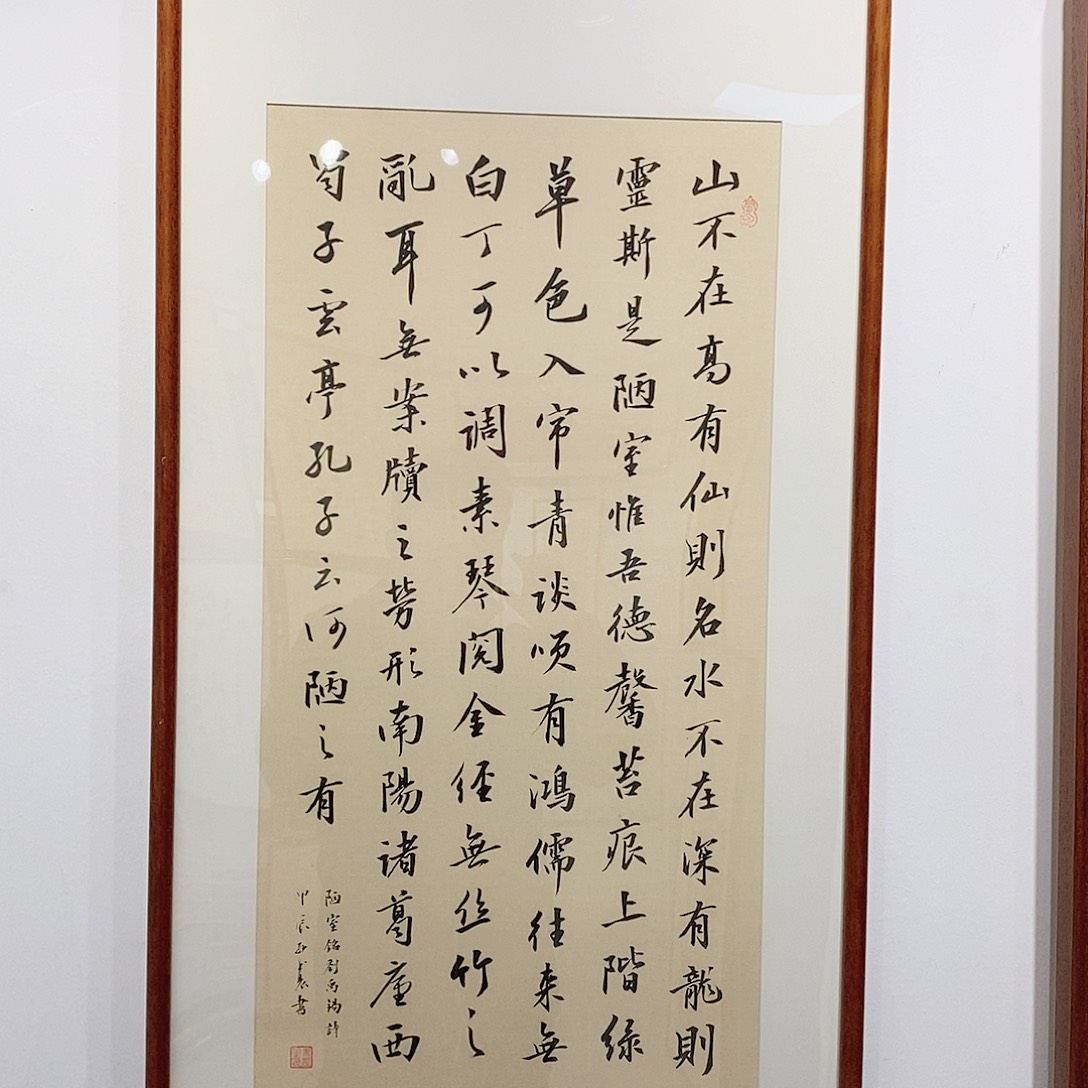 山不在高有仙則名水不在深有龍則
靈斯是陋室惟吾德馨苔痕上階緑
草色入帘青談咲有鴻儒往来無
白丁可以調素琴閱金經無丝竹之
亂耳無案牘之勞形南陽諸葛廬西
蜀子雲亭孔子云何陋之有
陋室銘劉禹錫詩
甲辰書